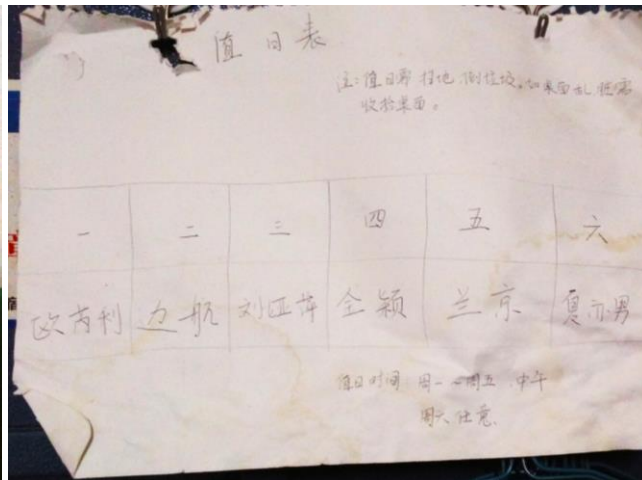 值日表
注:值日需扫地 倒垃圾。如桌面乱 还需
收拾桌面。
一 二 三 四 五 六
欧芮利 边航 刘亚萍 全颖 兰京 夏亦男
值日时间:周一~周五 中午
周六任意